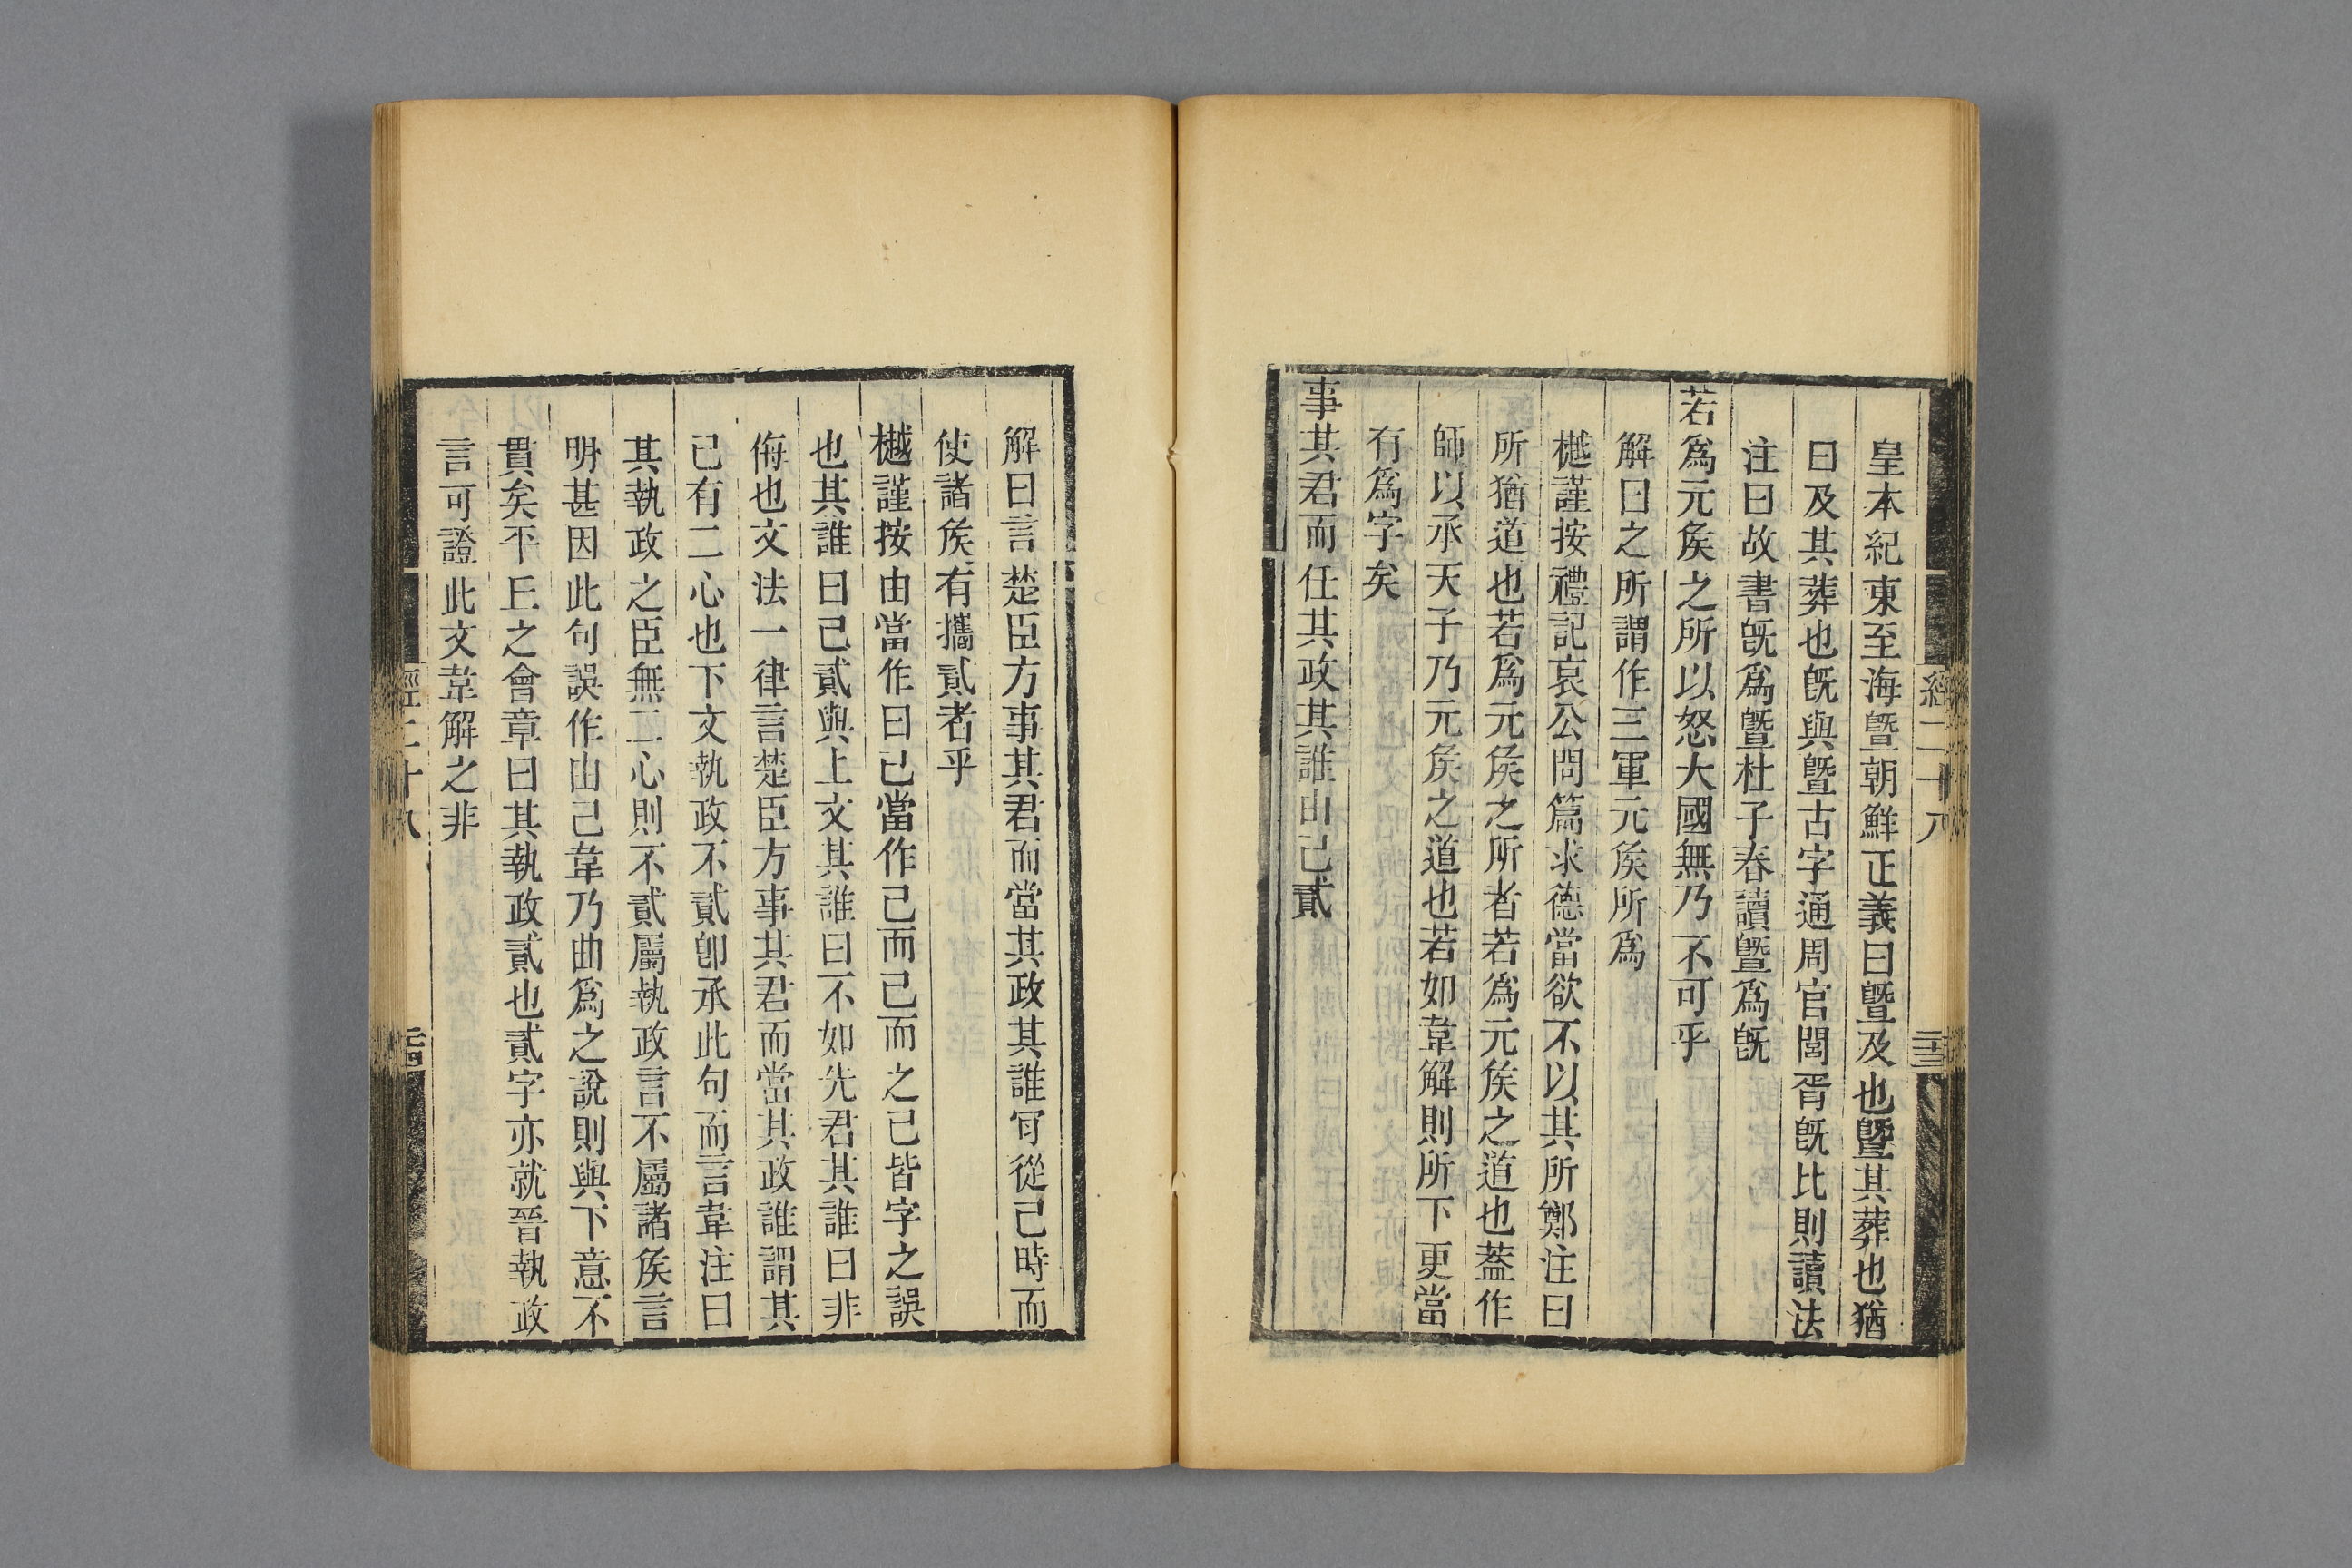 皇本紀東至海曁朝鮮正義曰曁及也曁其葬也猶
曰及其葬也旣與曁古字通周官閭胥旣比則讀法
注曰故書旣爲曁杜子春讀曁爲旣
若爲元矦之所以怒大國無乃不可乎
解曰之所謂作三軍元矦所爲
樾謹按禮記哀公問篇求德當欲不以其所鄭注曰
所猶道也若爲元矦之所者若爲元矦之道也蓋作
師以承天子乃元矦之道也若如韋解則所下更當
有爲字矣
事其君而任其政其誰由己貳
經二十八
二十三
解曰言楚臣方事其君而當其政其誰肎從己時而
使諸矦有攜貳者乎
樾謹按由當作曰已當作己而己而之己皆字之誤
也其誰曰己貳與上文其誰曰不如先君其誰曰非
侮也文法一律言楚臣方事其君而當其政誰謂其
已有二心也下文執政不貳卽承此句而言韋注曰
其執政之臣無二心則不貳屬執政言不屬諸矦言
明甚因此句誤作由己韋乃曲爲之說則與下意不
貫矣平王之會章曰其執政貳也貳字亦就晉執政
言可證此文韋解之非
經二十八
二十四